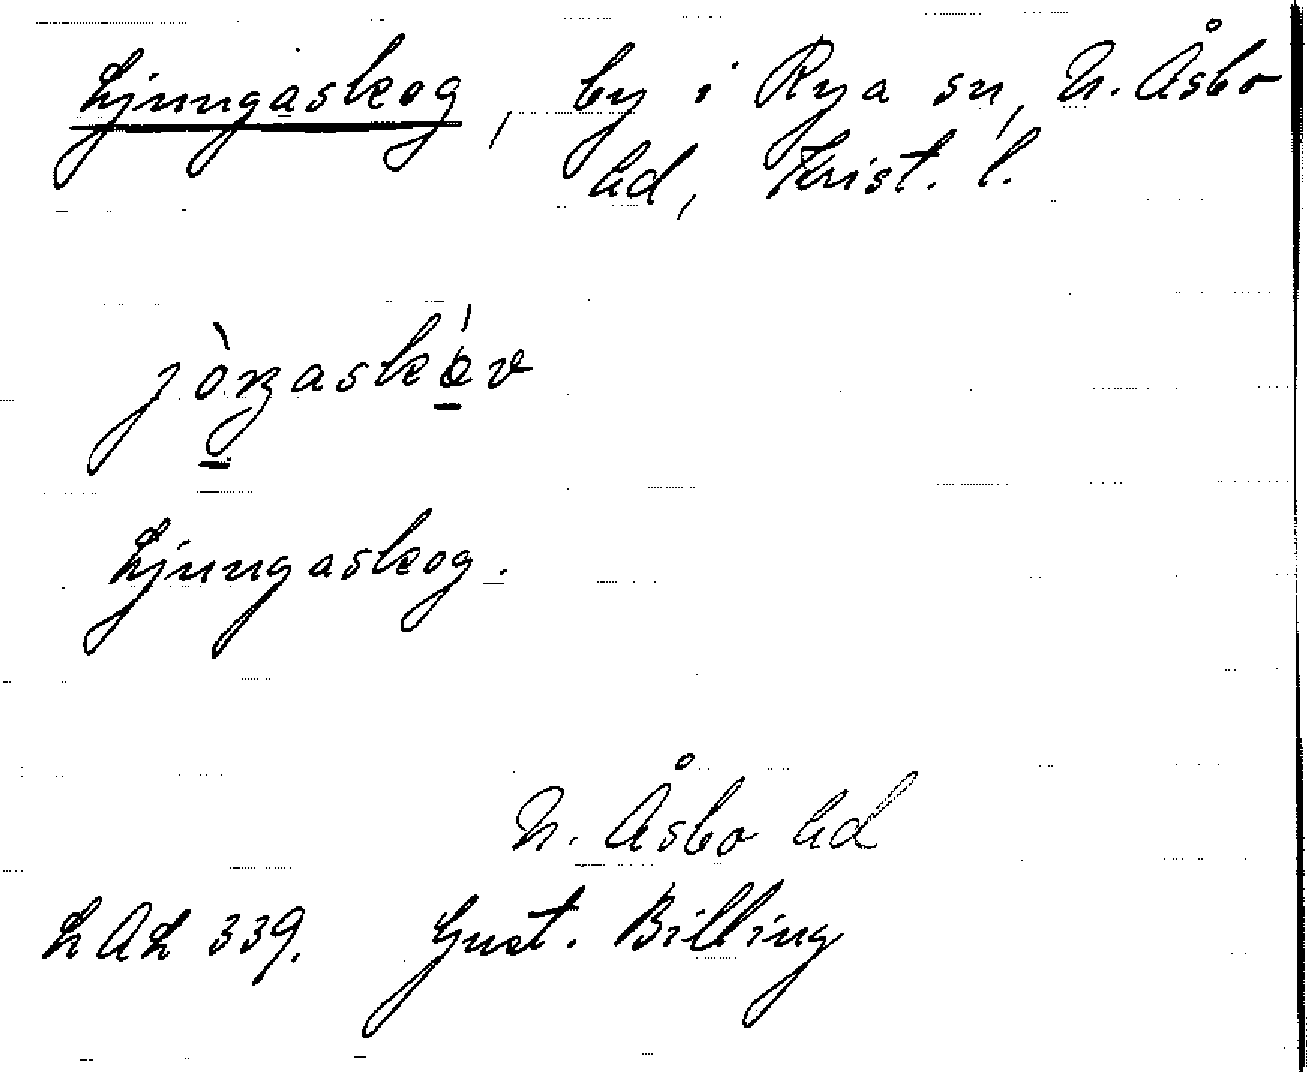 Ljungaskog, by i Rya sn, N. Åsbo
hd, Krist. l.
jòŋaskóv
Ljungaskog.
N. Åsbo hd
LAL 339. Gust. Billing